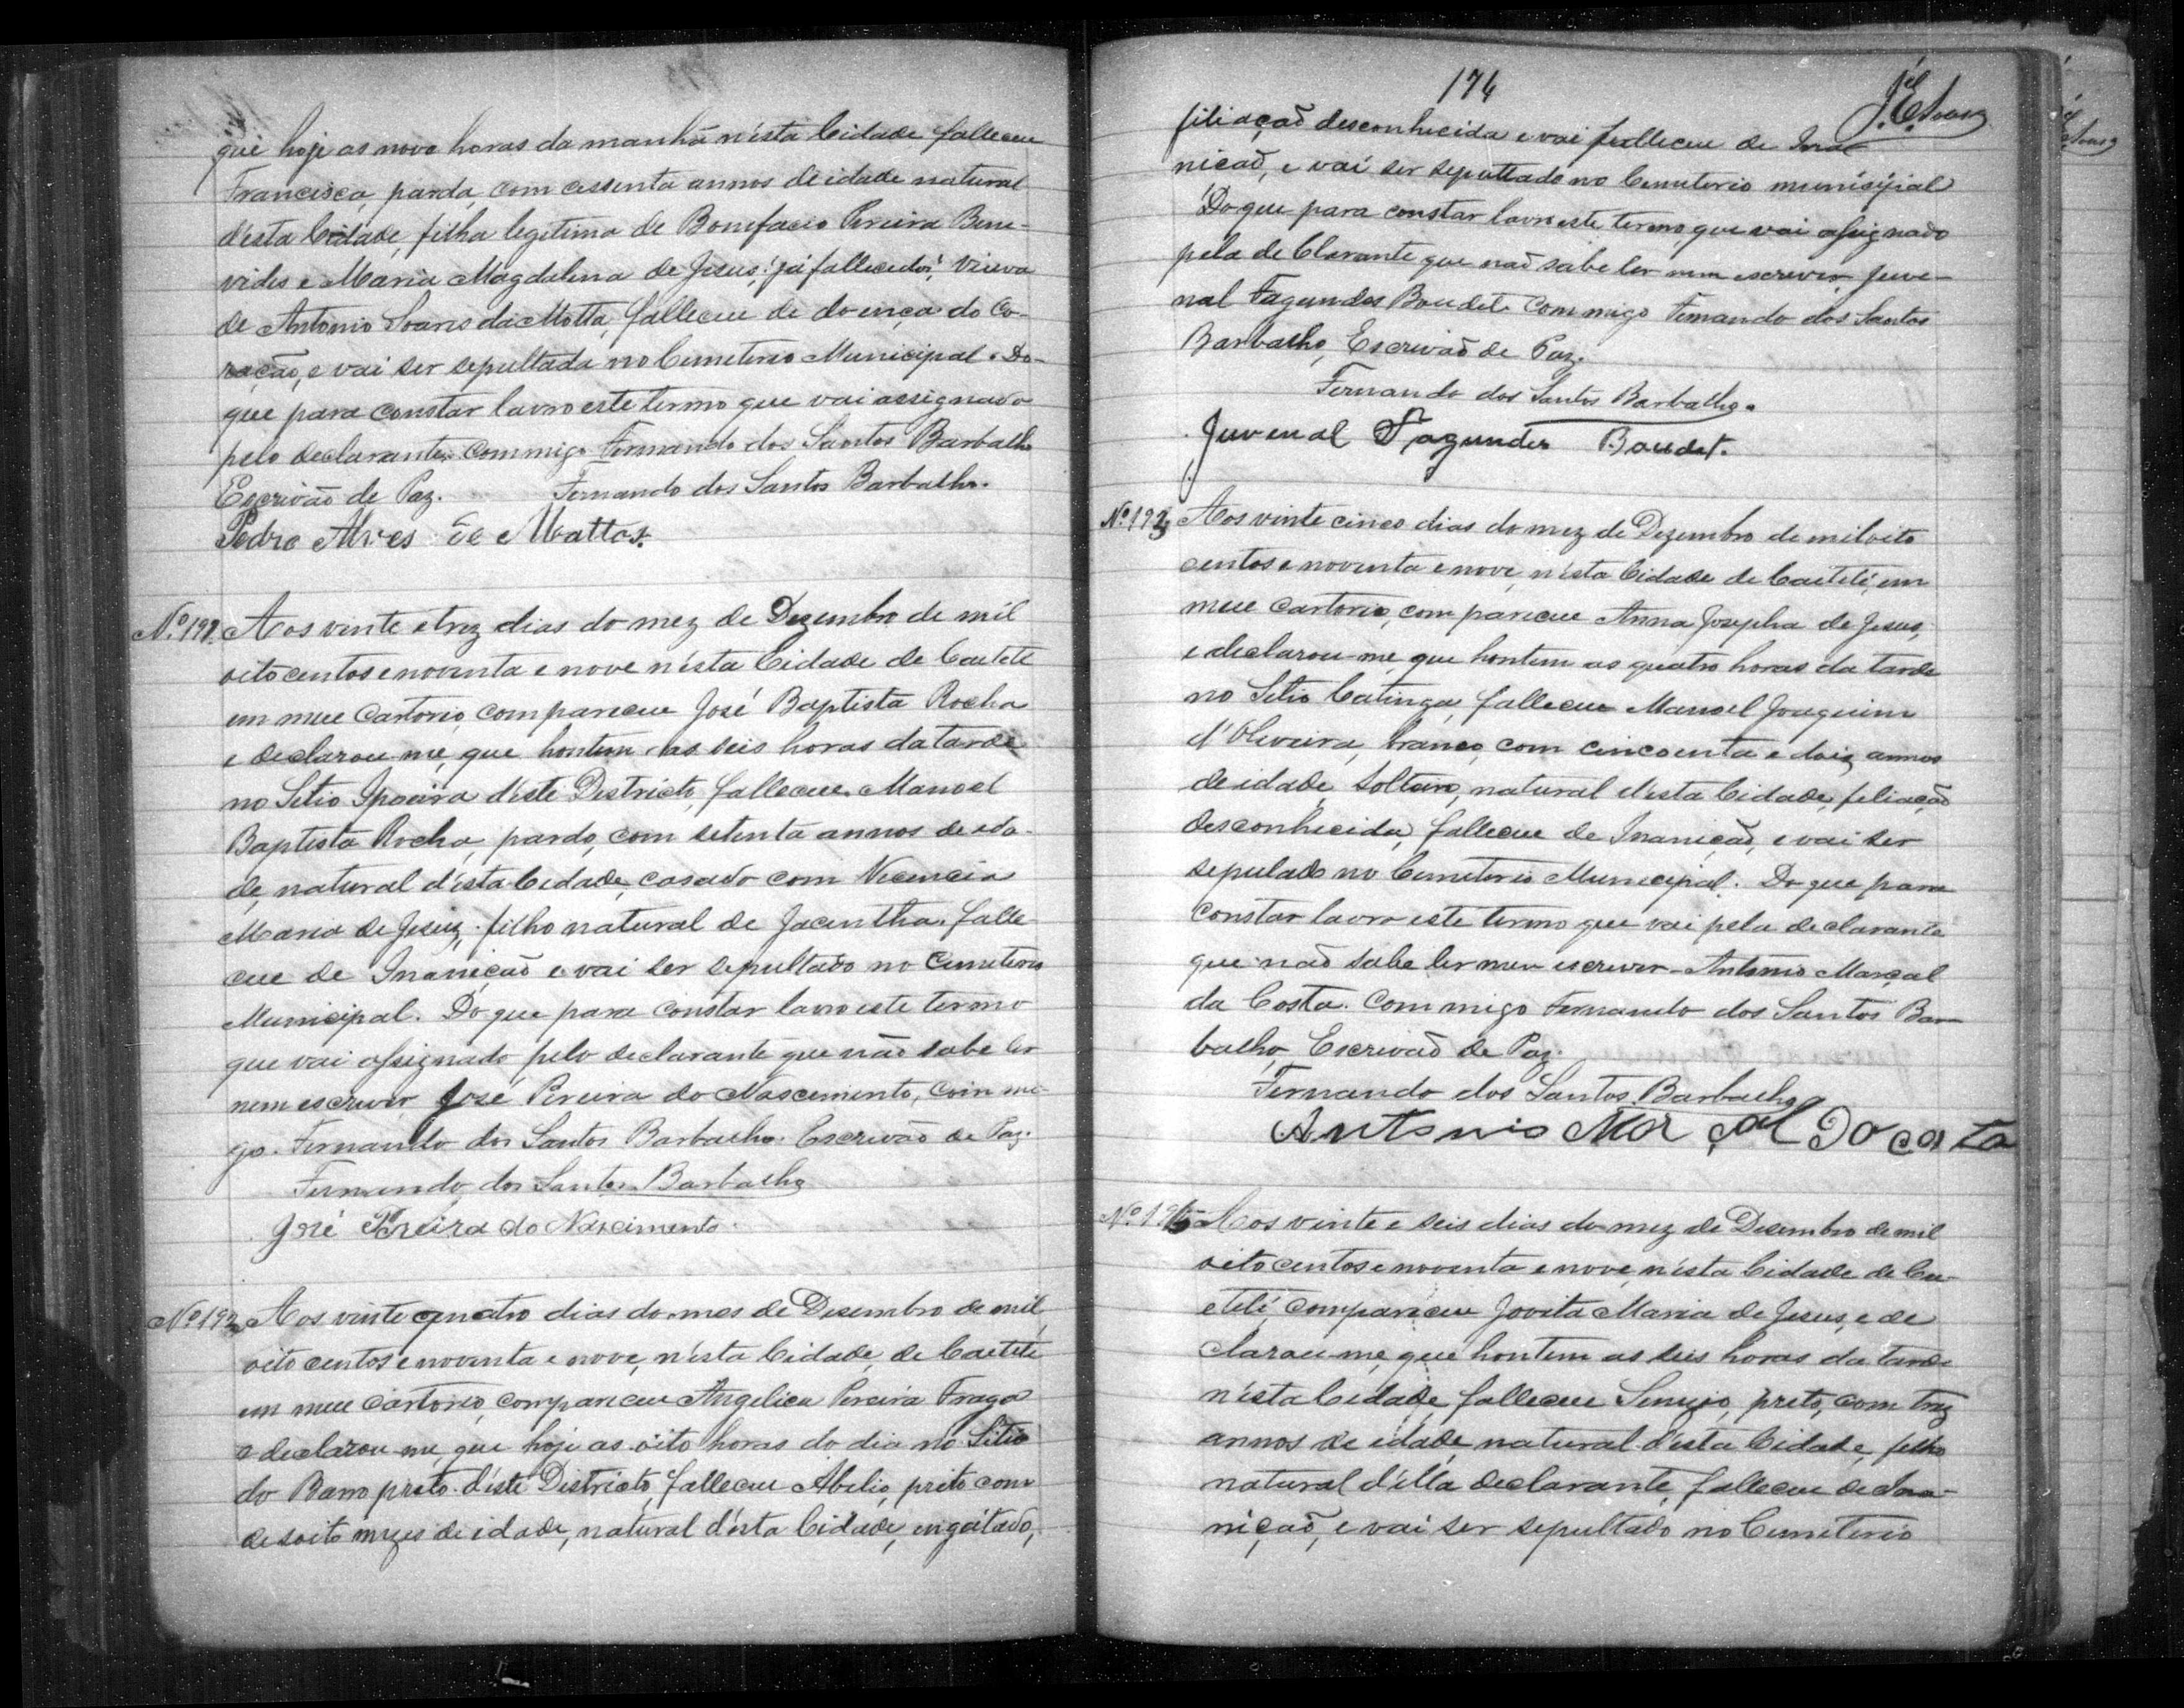 que hoje as nove horas da manhã n'ésta Cidade falleceu
Francisca, parda, com cessenta annos de idade natural
d'ésta Cidade, filha legitima de Bonifacio Pereira Bene-
vides e Maria Magdalena de Jesus, já fallecidos, viuva
de Antonio Soares da Motta, falleceu de doença do Co-
ração, e vai ser sepultada no Cemeterio Municipal. Do-
que para constar lavro este termo que vai assignado
pelo declarante, commigo Fernando dos Santos Barbalho
Escrivão de Paz. Fernando dos Santos Barbalho.
Pedro Alves de Mattos.
Nº 191. Aos vinte e trez dias do mez de Dezembro de mil
oito centos e noventa e nove n'ésta Cidade de Caeteté
em meu Cartorio, compareceu José Baptista Rocha
e declarou-me, que hontem as seis horas da tarde
no Sitio Ipoeira d'éste Districto, falleceu Manoel
Baptista Rocha, pardo, com setenta annos de eda-
de, natural d'ésta Cedade, casado com Vicencia
Maria de Jesus, filho natural de Jacintha, falle
ceu de Inanição e vai ser sepultado no Cemeterio
Municipal. Do que para constar lavro este termo
que vai assignado pelo declarante que não sabe ler
nem escrever José Pereira do Nascimento, com mi-
go. Fernando dos Santos Barbalho. Escrivão de Paz.
Fernando dos Santos Barbalho
José Pereira do Nascimento.
Nº 192 Aos vinte quatro dias do mes de Desembro de mil
oito centos e noventa e nove, n'ésta Cidade, de Caeteté
em meu Cartorio, compareceu Angelica Pereira Fraga
e declarou-me, que hoje as oito horas do dia no Sitio
do Barro preto d'éste Districto, falleceu Abelio, preto com
desoito mezes de idade, natural d'ésta Cidade, engeitado,
174
filiação desconhecida e vai falleceu de Ina
nicão, e vai ser sepultado no Cemeterio munisipial
Do que para constar lavro este termo, que vai assignado
pela de Clarante que não sabe ler nem escrever, Juve-
nal Fagundes Boudet. Commigo Fernando dos Santos
Barbalho, Escrivão de Paz.
Fernando dos Santos Barbalho.
Juvenal Fagundes Boudet.
Nº 193 Aos vinte cinco dias do mez de Dezembro de mil oito
centos e noventa e nove, n'ésta Cidade de Caeteté, em
meu Cartorio, compareceu Anna Josepha de Jesus,
e declarou-me, que hontem as quatro horas da tarde
no Sitio Catinga, falleceu Manoel Joaquim
d'Oliveira, branco, com cincoenta e dois annos
de idade, solteiro, natural d'ésta Cidade, filiação
desconhecida, falleceu de Inanição, e vai ser
sepulado no Cemeterio Municipal. Do que para
constar lavro este termo que vai pela declarante
que não sabe ler nem escrever - Antonio Marçal
da Costa. Commigo Fernando dos Santos Bar
balho, Escrivão de Paz.
Fernando dos Santos Barbalho
Antonio Mar çal Da costa
Nº Aos vinte e seis dias do mez de Desembro de mil
oito centos e noventa e nove, n'ésta Cidade de Ca-
eteté, compareceu Jovita Maria de Jesus, e de
clarou-me, que hontem as seis horas da tarde
n'ésta Cedade, falleceu preto, com trez
annos de idade, natural d'ésta Cidade, filho
natural d'élla declarante, falleceu de Ina-
nição, e vai ser sepultado no Cemeterio